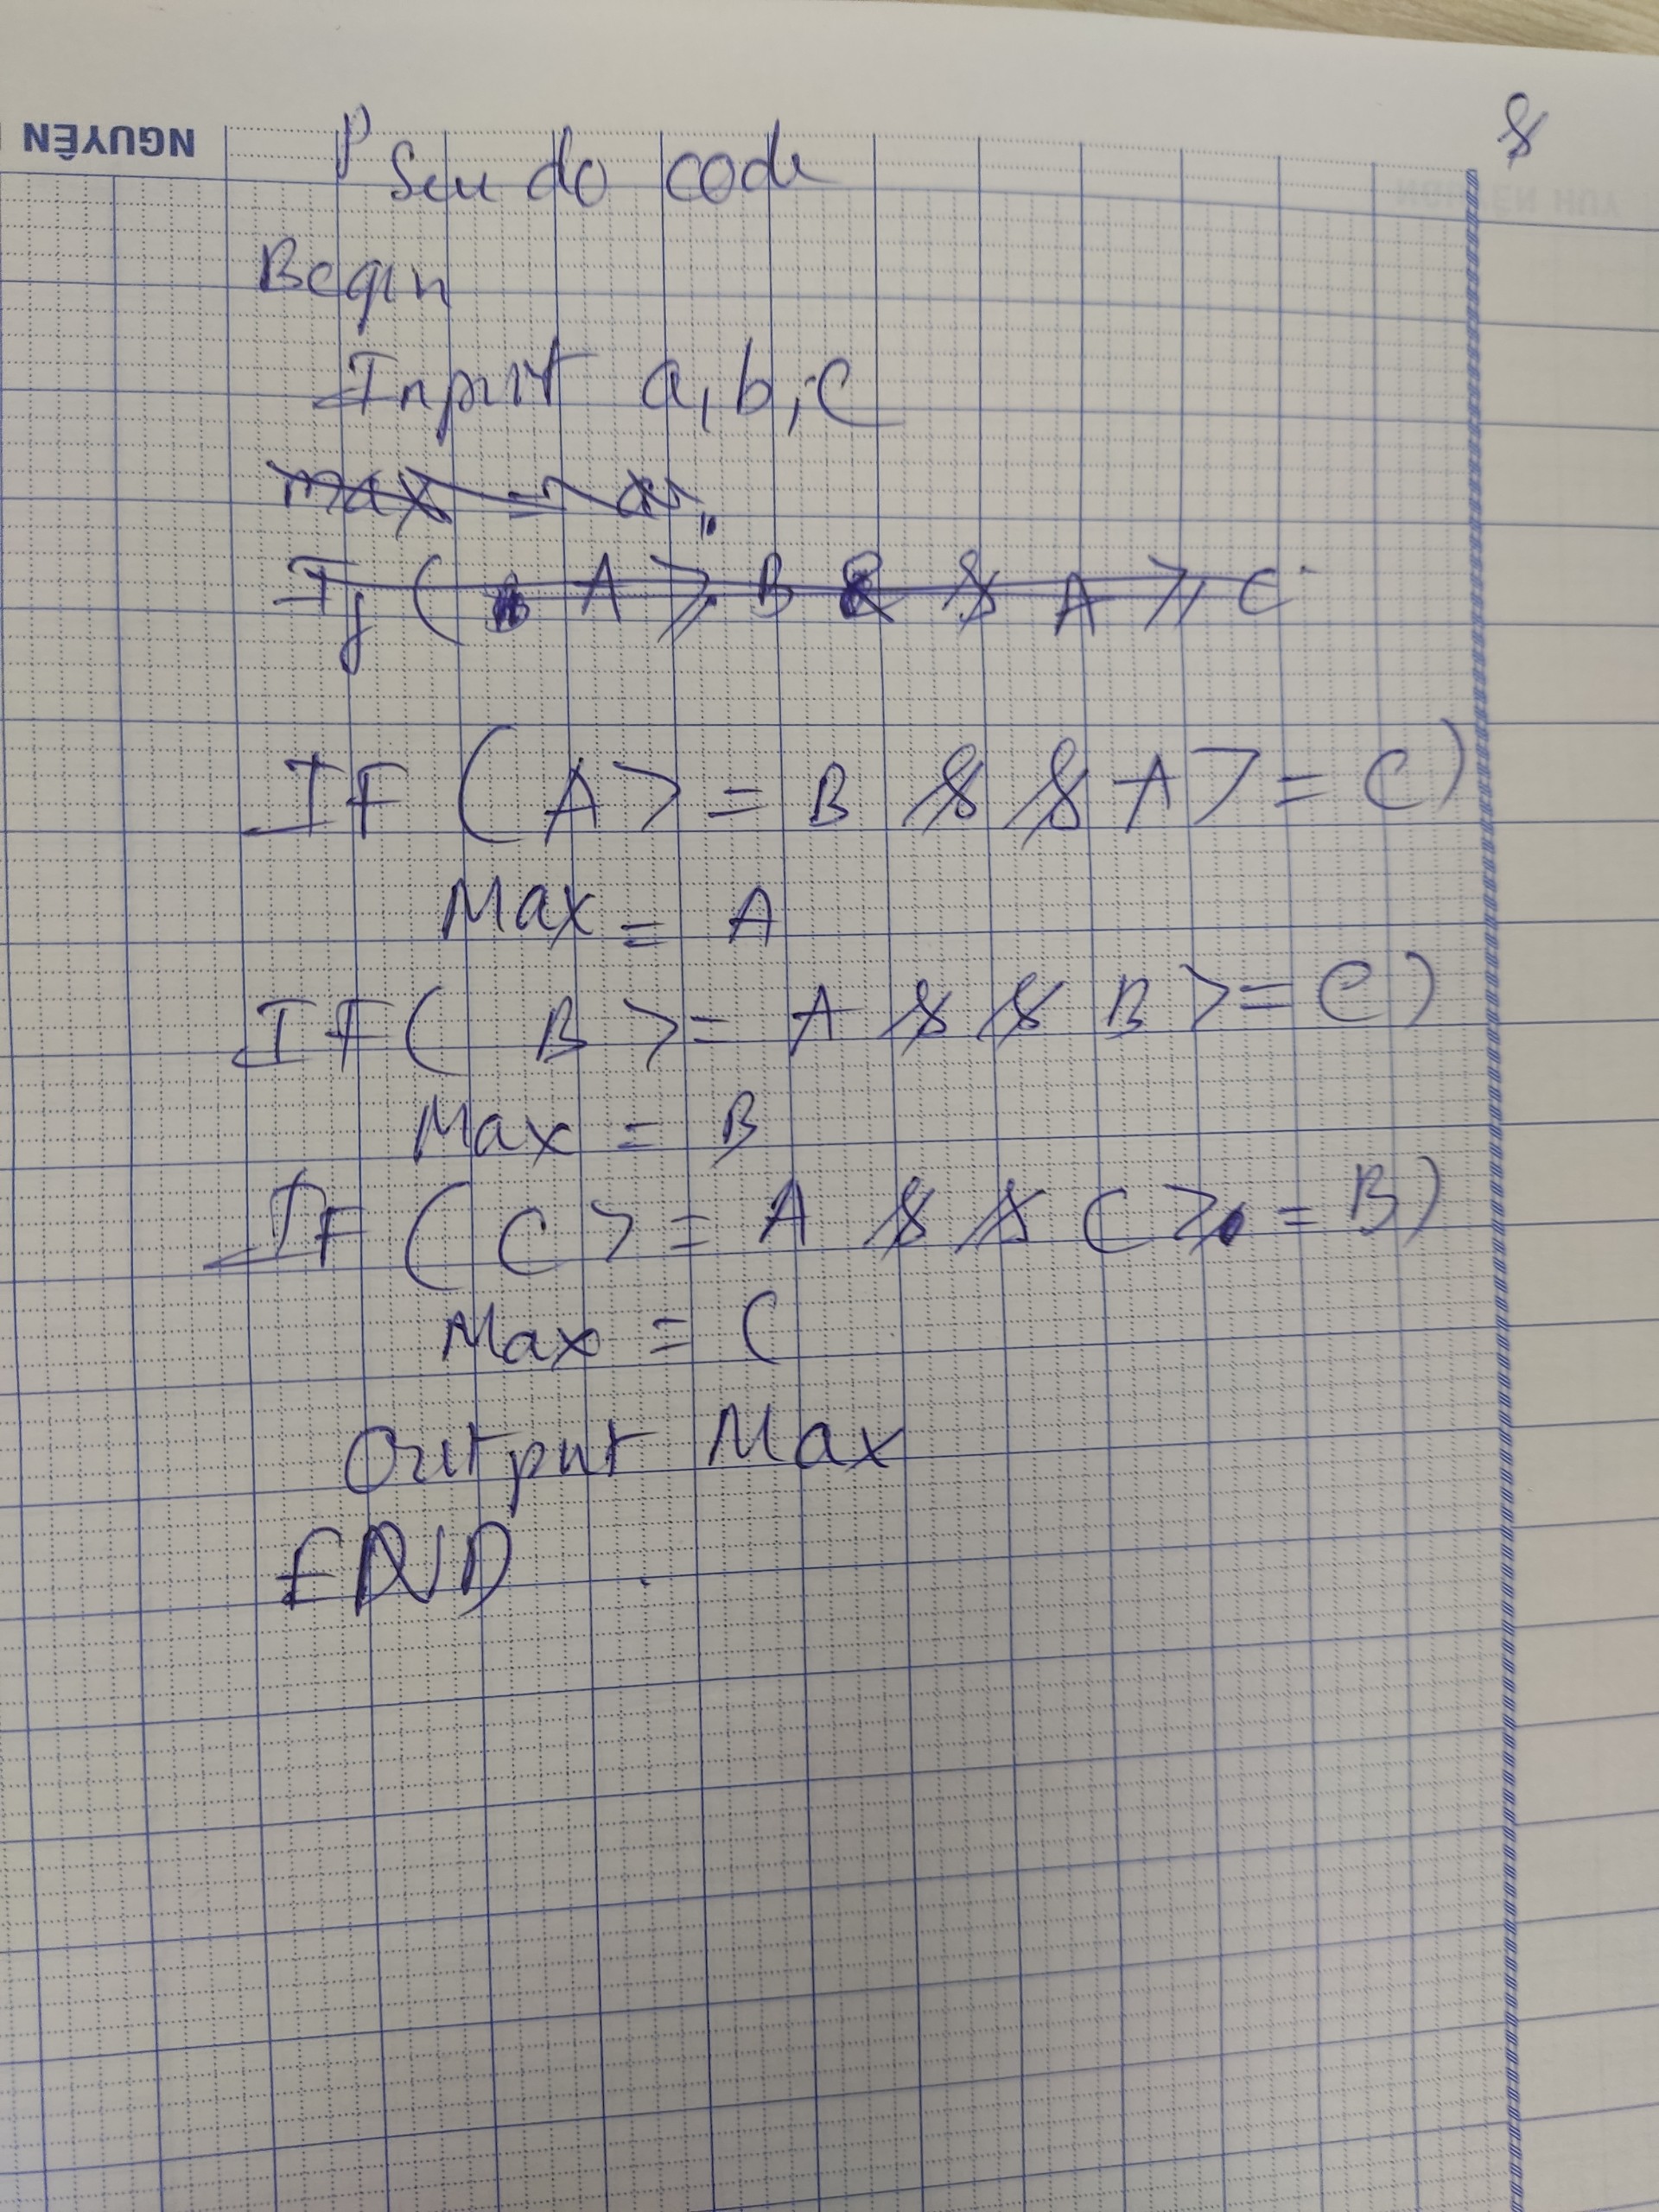 NGUYÊN
&
Pseudo code
Begin
Input a, b, c
max = a;
If ( A >, B & & A >, C
IF ( A > = B && A > = C )
Max = A
IF ( B > = A && B > = C )
Max = B
IF ( C > = A && C > = B )
Max = C
Output Max
END